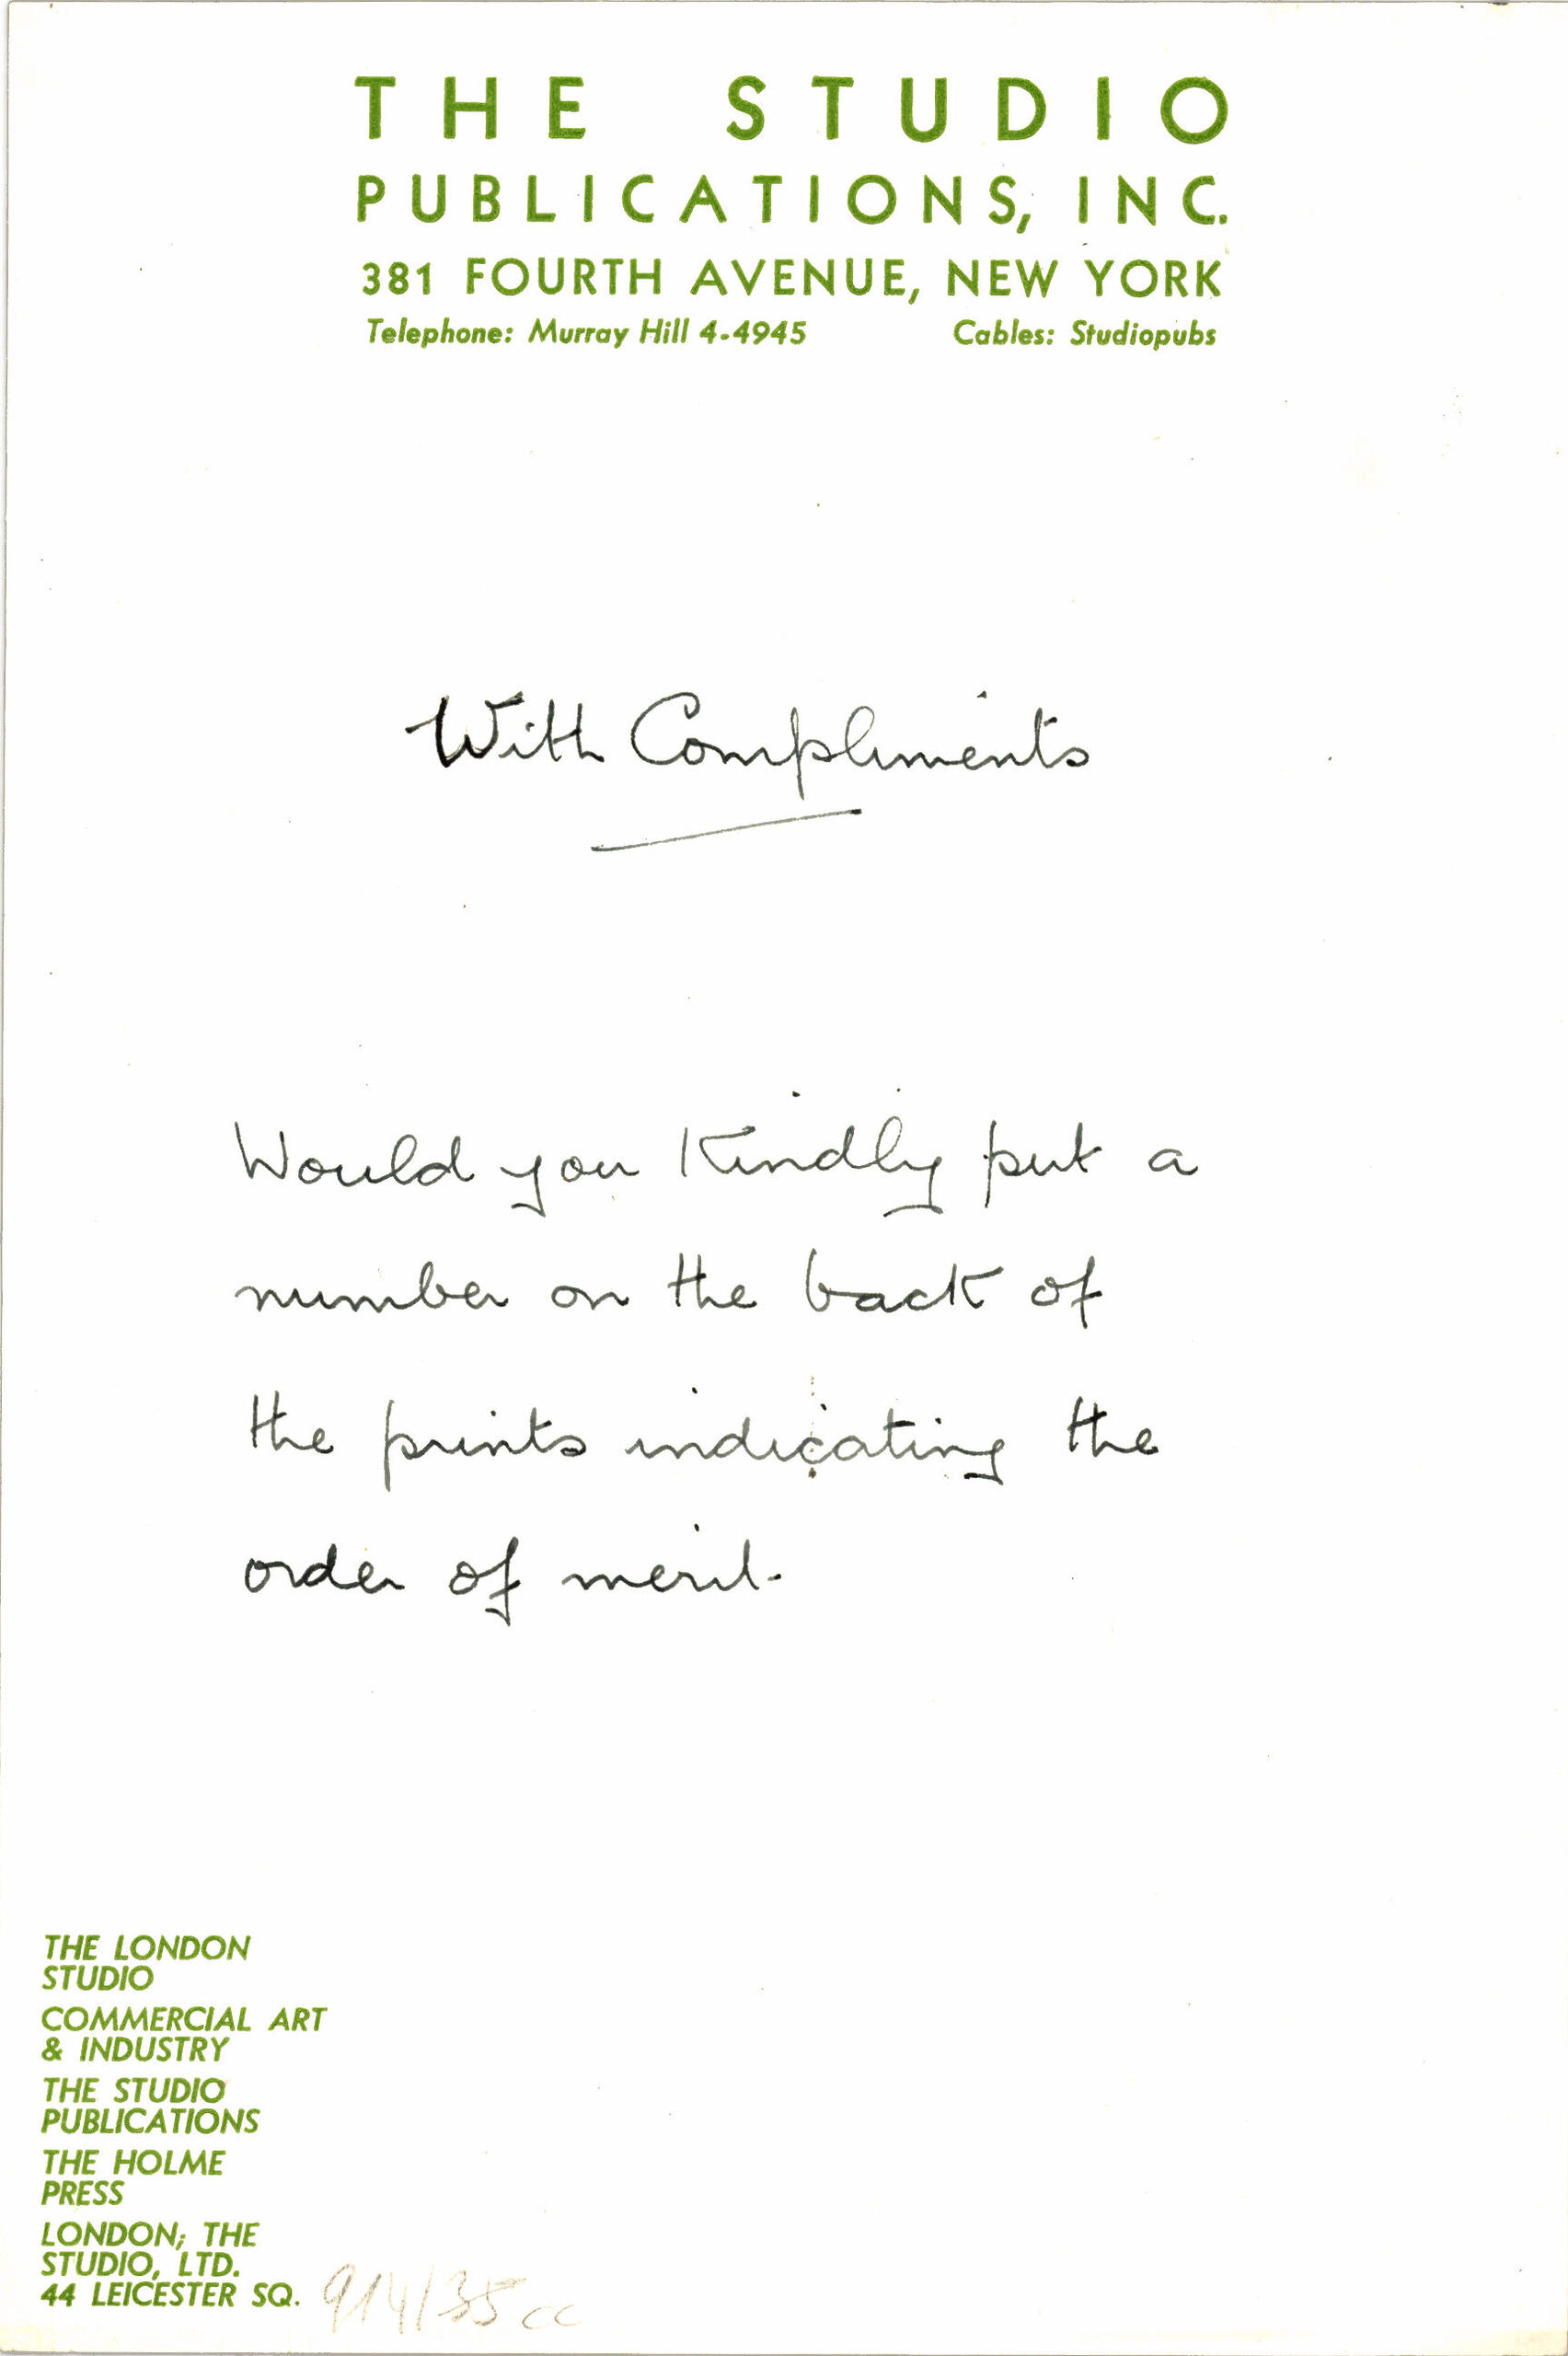 THE STUDIO
PUBLICATIONS, INC.
381 FOURTH AVENUE, NEW YORK
Telephone: Murray Hill 4-4945 Cables: Studiopubs
With Compliments
Would you Kindly put a
number on the back of
the prints indicating the
order of merit.
THE LONDON
STUDIO
COMMERCIAL ART
& INDUSTRY
THE STUDIO
PUBLICATIONS
THE HOLME
PRESS
LONDON; THE
STUDIO, LTD.
44 LEICESTER SQ.